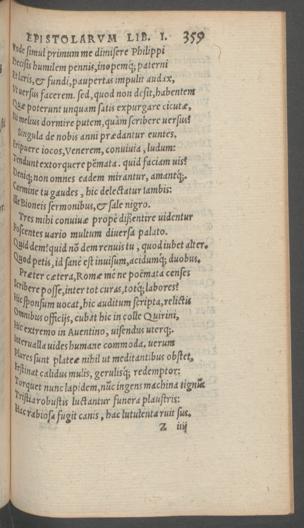 EPISTOLARVM LIB. I. 359
Vnde simul primum me dimisere Philippi
Decisis humilem pennis, inopemq́; paterni
Et laris, & fundi, paupertas impulit audax,
Vt uersus facerem. sed, quod non desit, habentem
Quæ poterunt unquam satis expurgare cicutæ,
Ni melius dormire putem, quàm scribere uersus?
Singula de nobis anni prædantur euntes.
Eripuere iocos, Venerem, conuiuia, ludum:
Tendunt extorquere pëmata. quid faciam uis?
Deniq; non omnes eadem mirantur, amantq́;.
Carmine tu gaudes, hic delectatur iambis:
Ille Bioneis sermonibus, & sale nigro.
Tres mihi conuiuæ propè dissentire uidentur
Poscentes uario multum diuersa palato.
Quid dem? quid nõ dem renuis tu, quod iubet alter.
Quod petis, id sanè est inuisum, acidumq́; duobus.
Præter cætera, Romæ me ne poëmata censes
Scribere posse, inter tot curas, totq́; labores?
Hic sponsum uocat, hic auditum scripta, relictis
Omnibus officijs, cubat hic in colle Quirini,
Hic extremo in Auentino, uisendus uterq;.
Interualla uides humane commoda, uerum
Pures sunt plateæ nihil ut meditantibus obstet,
Festinat calidus mulis, gerulisq́; redemptor:
Torquet nunc lapidem, nũc ingens machina tignũ:
Tristia robustis luctantur funera plaustris:
Hac rabiosa fugit canis, hac lutulenta ruit sus.
Z iiij